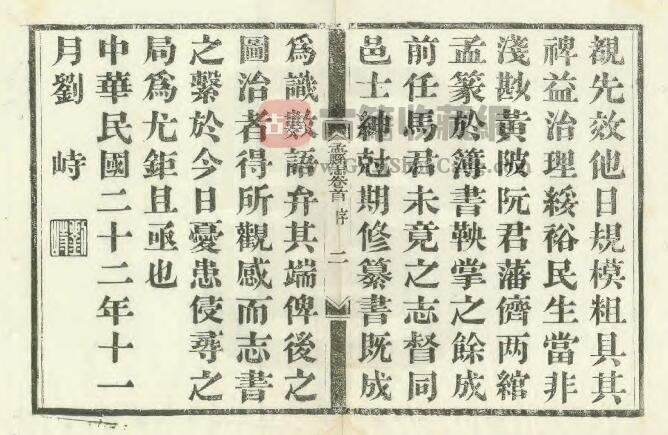 觀先效他日規模粗具其
裨益治理綏裕民生當非
淺尠黃陂阮君藩儕两綰
孟篆於簿書鞅掌之餘成
前任馬君未竟之志督同
邑士紳尅期修纂書既成
孟縣志卷首 序 二
爲識數語弁其端俾後之
圖治者得所觀感而志書
之繫於今日憂患侵尋之
局爲尤鉅且亟也
中華民國二十二年十一
月劉峙
劉峙